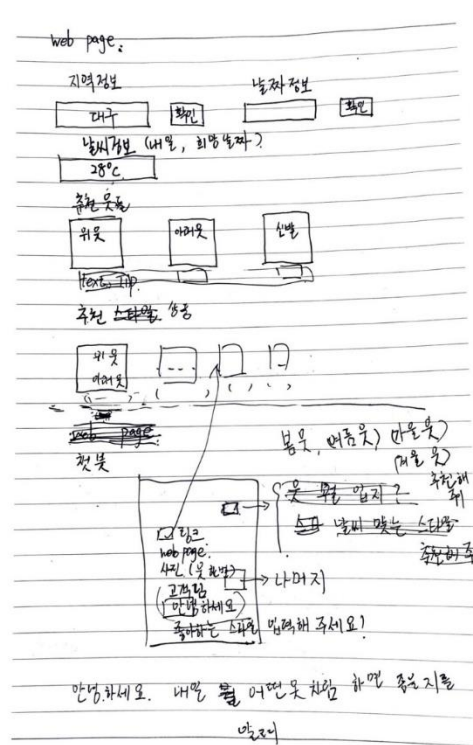 web page:
지역정보 날짜정보
대구 확인 확인
날씨정보 (내일, 희망날짜)
28°C
추천 옷들
위옷 아래옷 신발
text, Tip
추천 스타일 상하
위옷
아래옷 ( ) ( ) ( )
web page
챗봇
봄옷, (여름옷) (가을옷)
(겨울 옷)
추천해
줘
옷 뭘 입지?
날씨 맞는 스타일
추천해 주
링크
web page.
사진 (옷 )
고객님
안녕하세요 → 나머지
좋아하는 스타일 입력해 주세요!
안녕하세요. 내일 어떤옷차림 하면 좋을지를